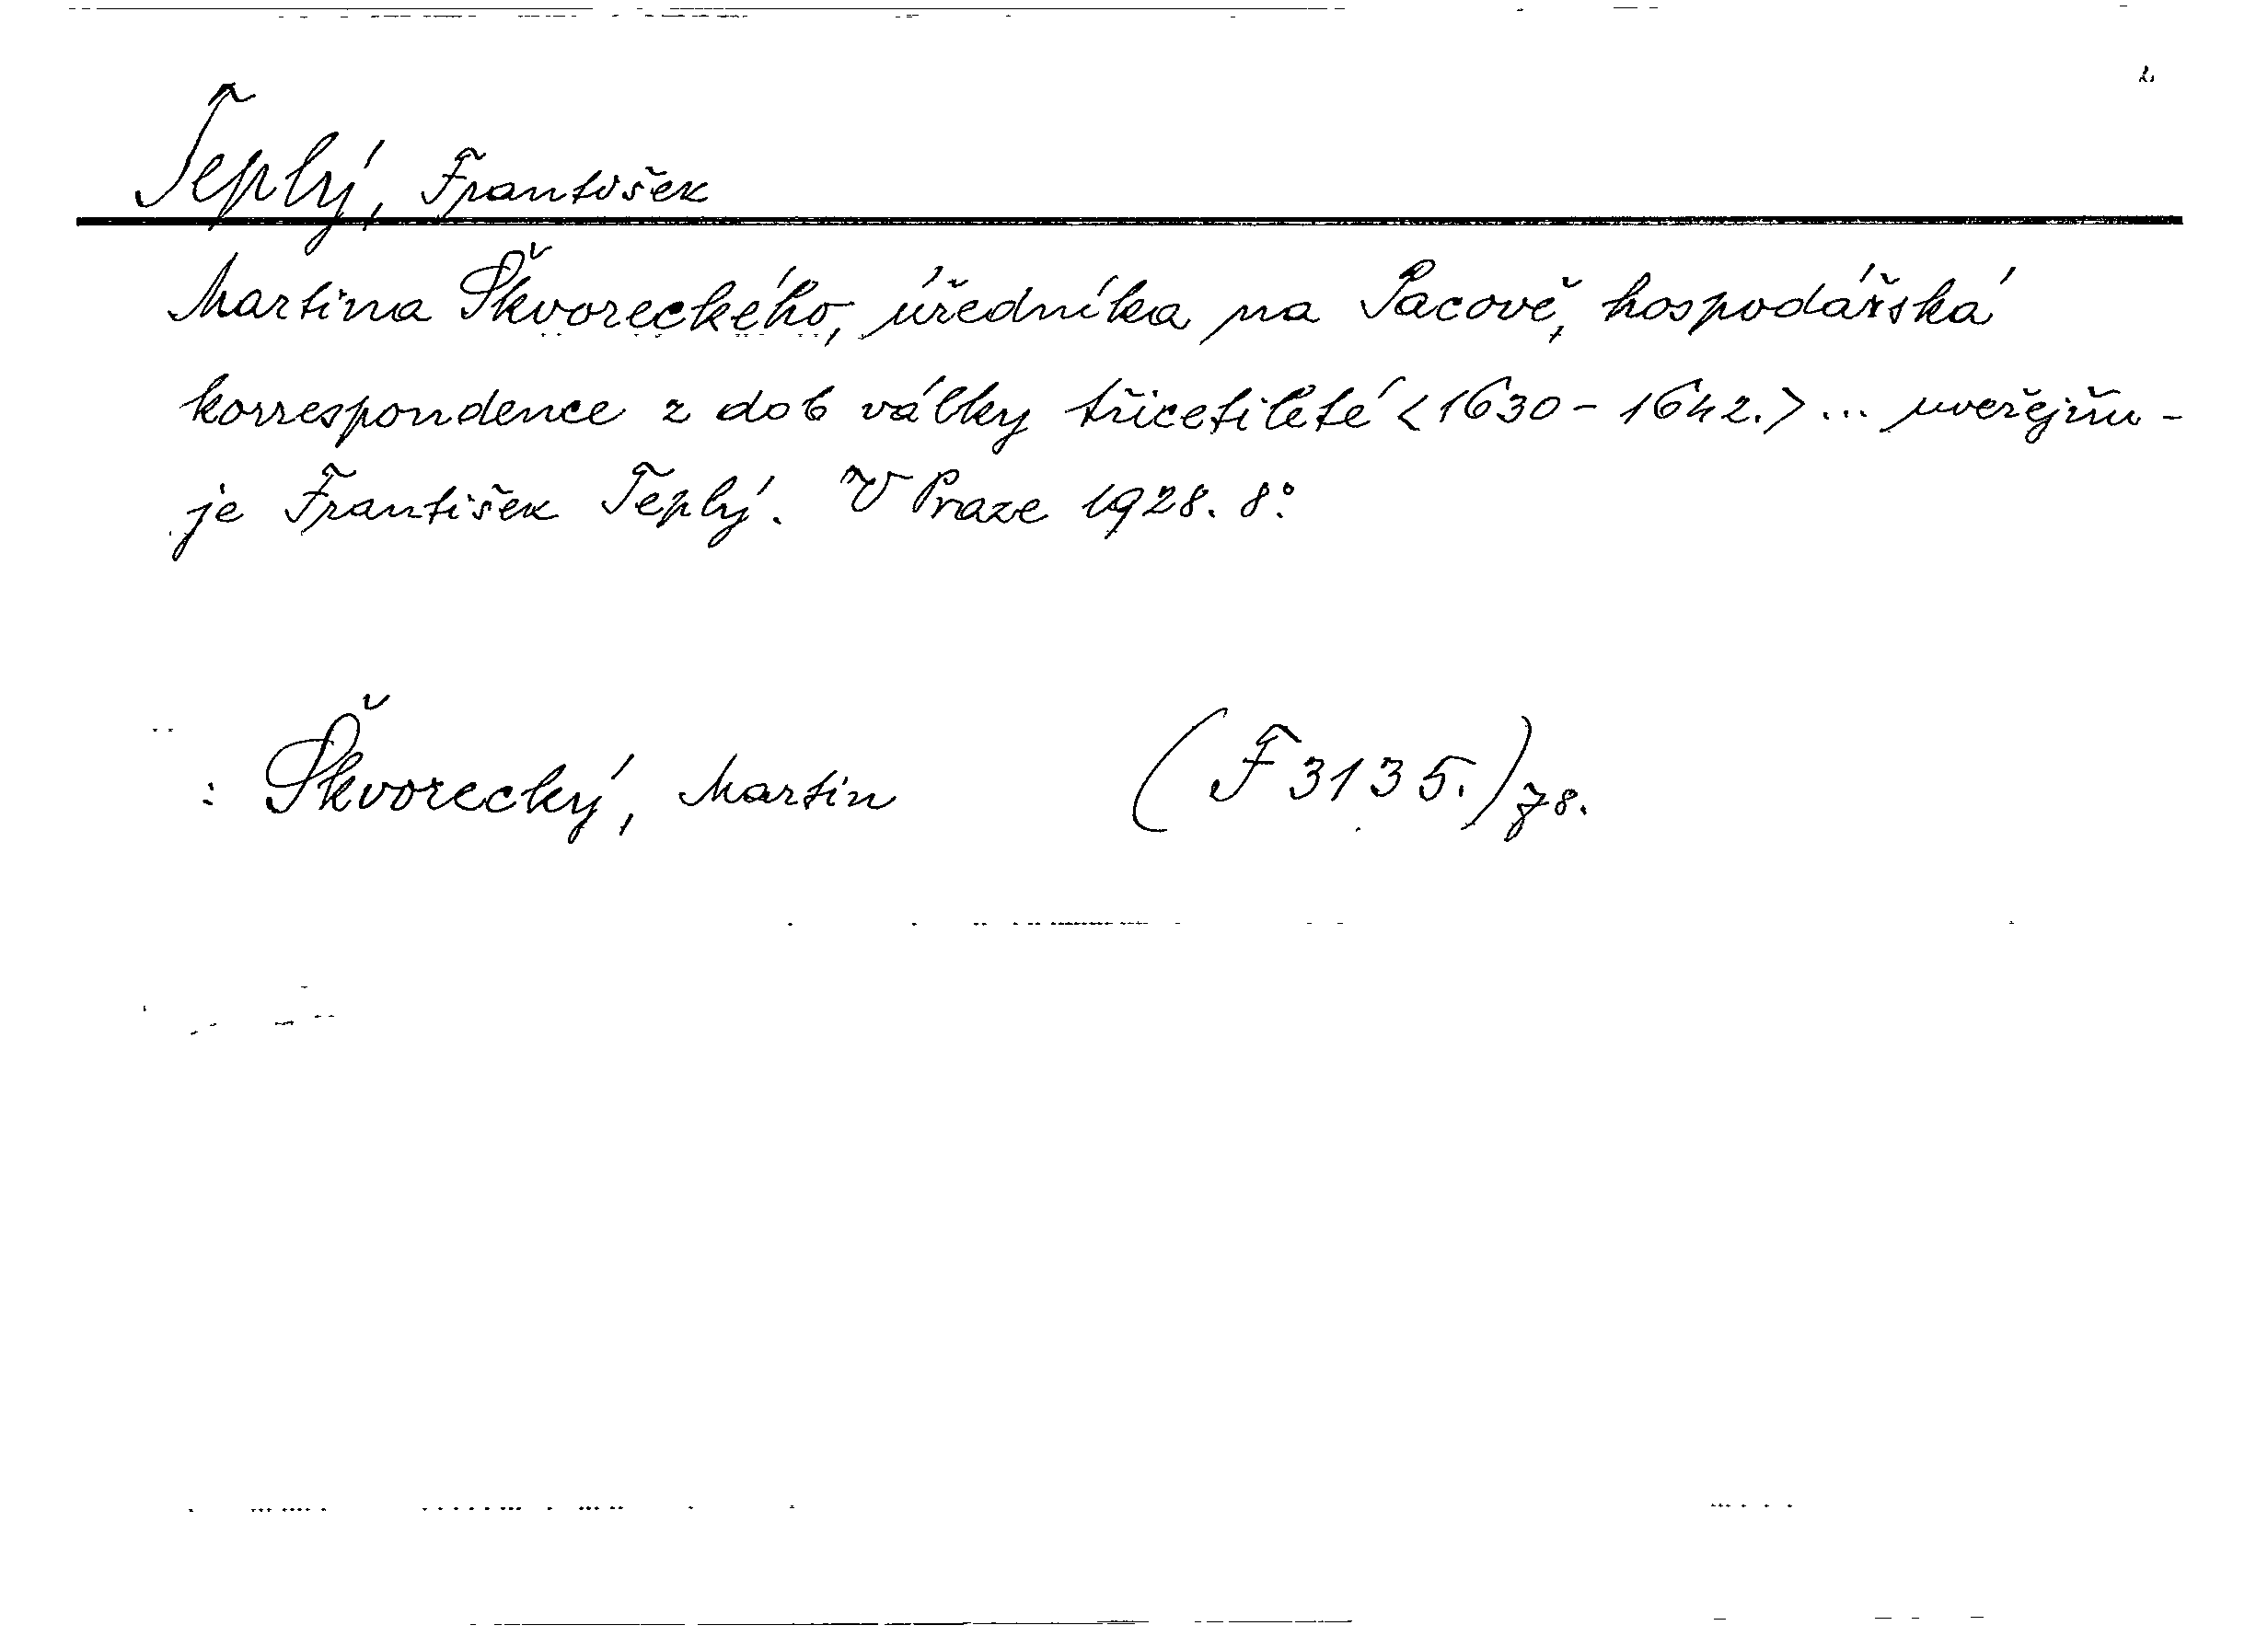 2.
Teplý, František
Martina Škvoreckého, úředníka na Pacově, hospodářská
korrespondence z dob války třicetileté <1630-1642.> ... uveřejňu-
je František Teplý. V Praze 1928. 8°.
: Škvorecký, Martin (F 3135.)/78.